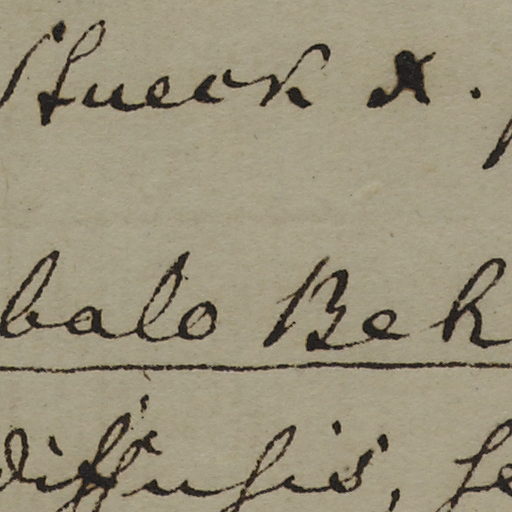 Stueck x.
balo Beh
diffusis, se